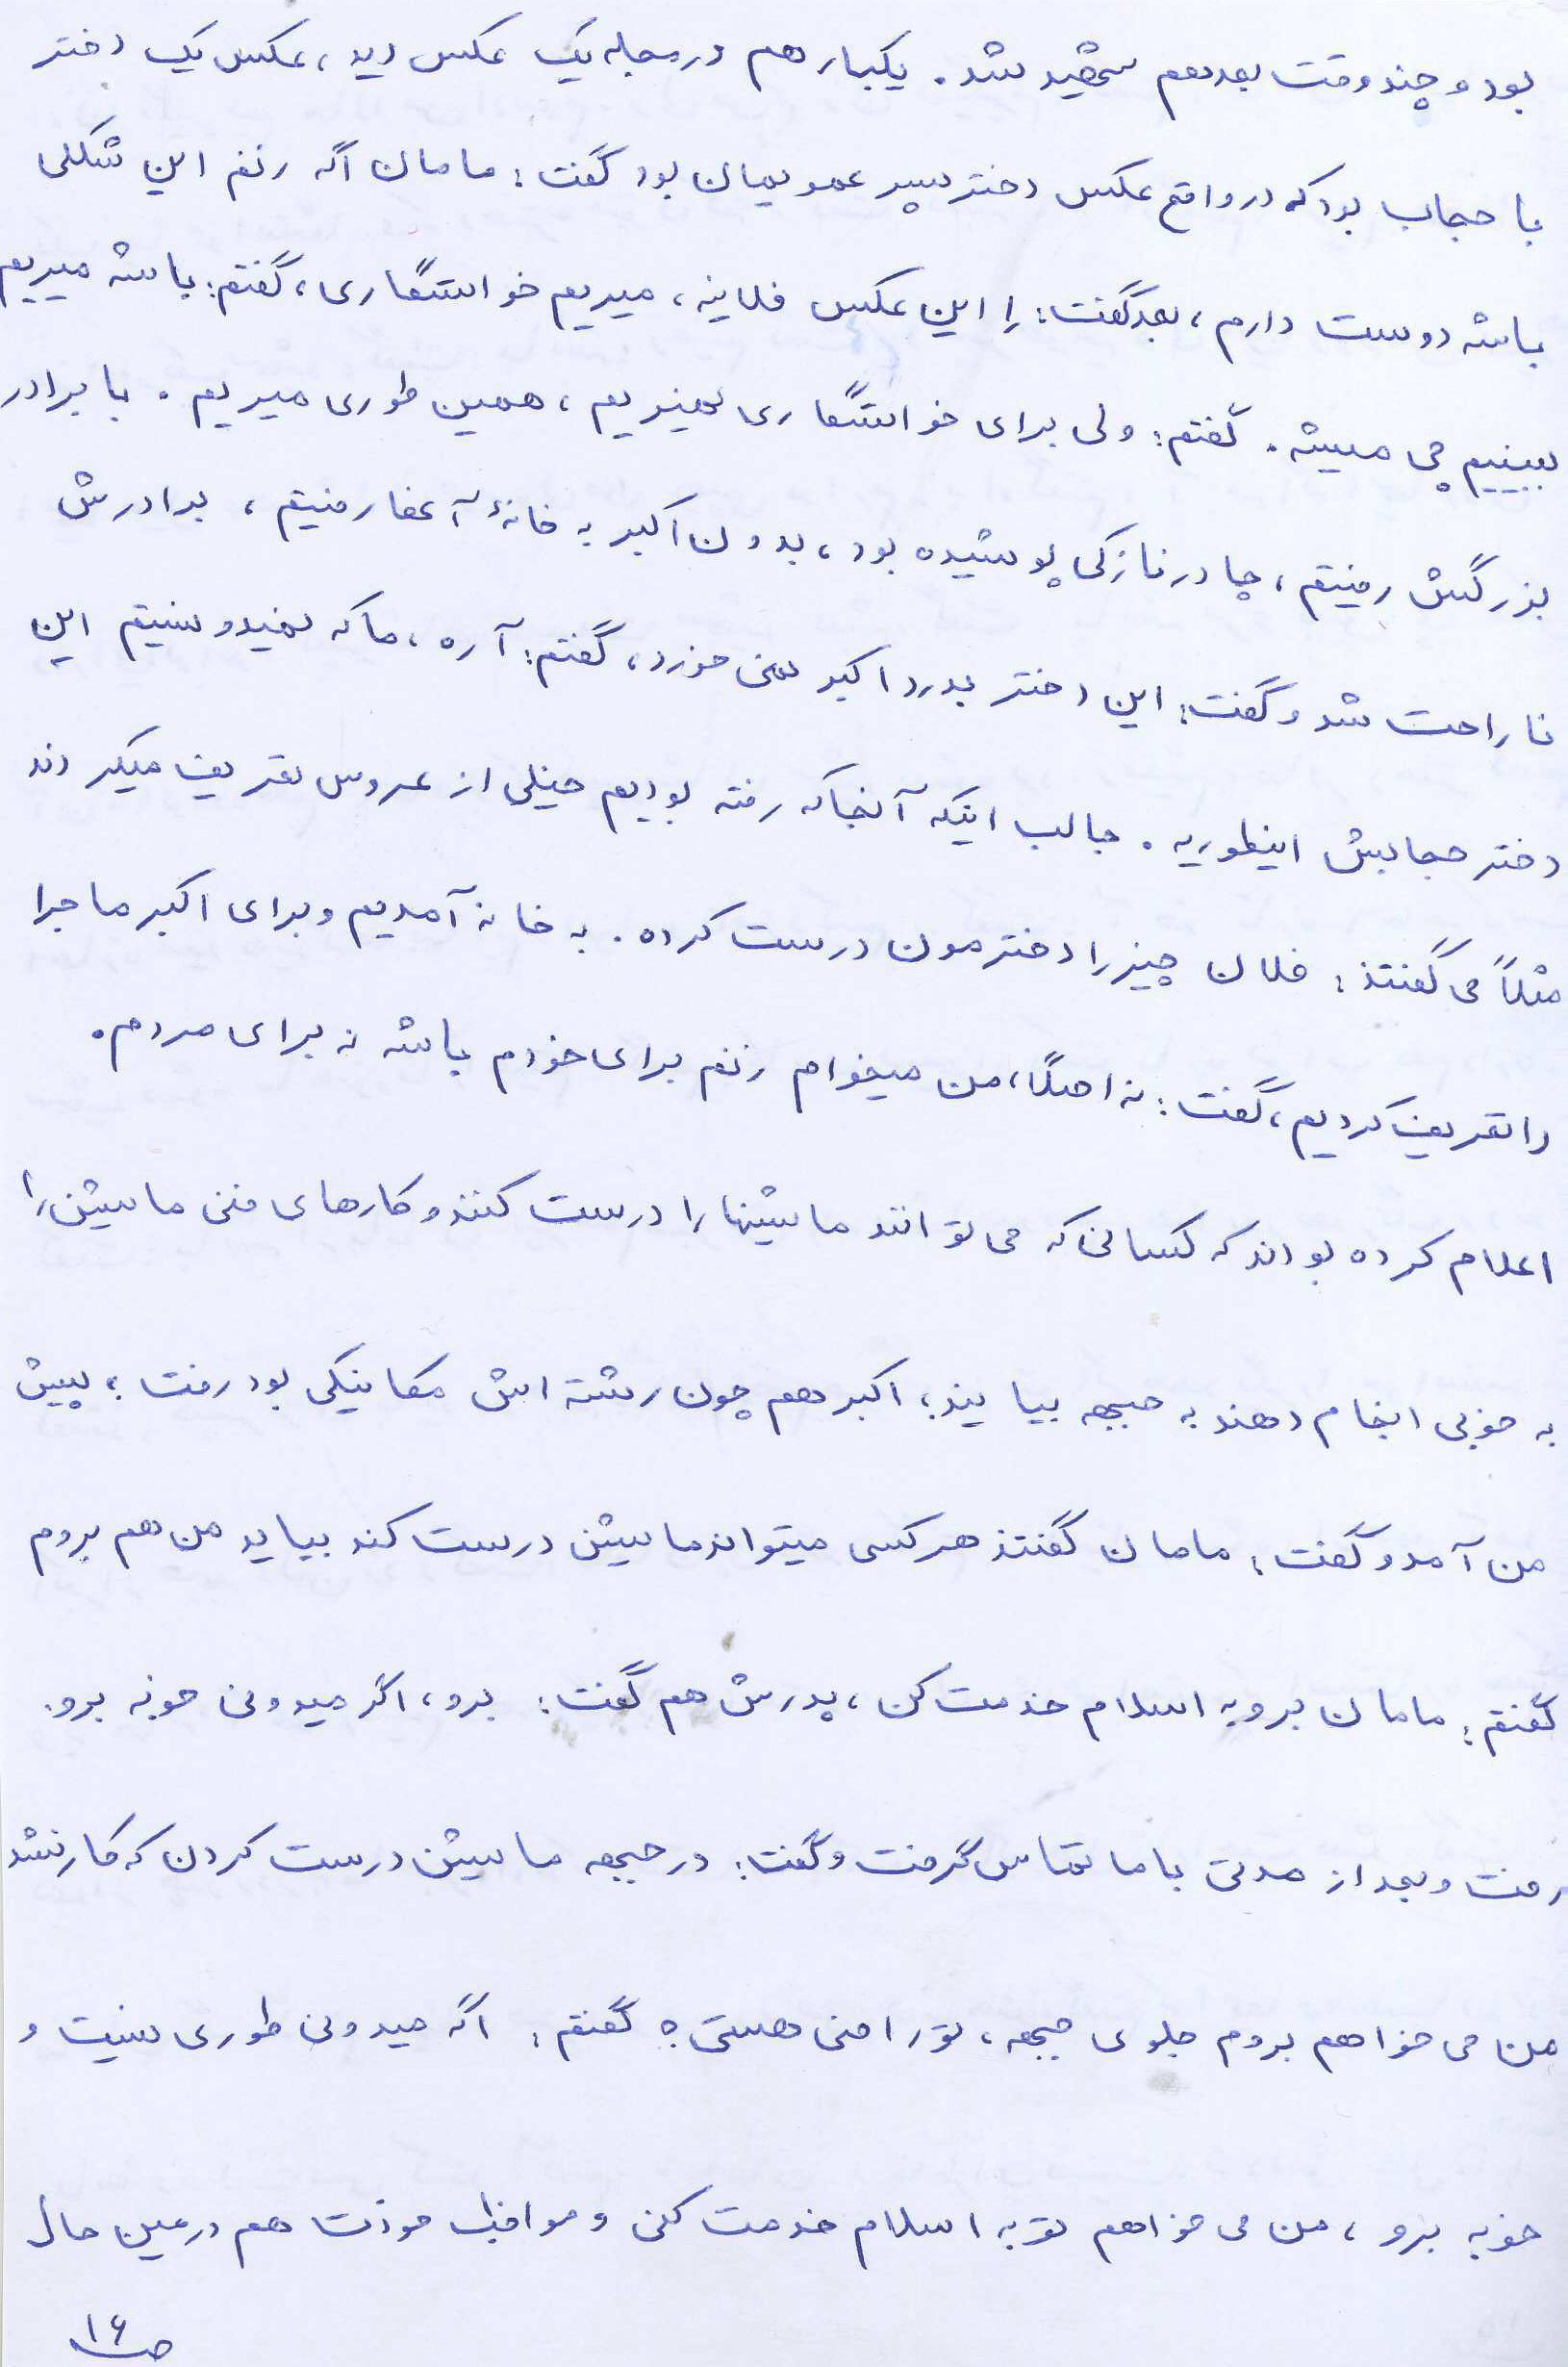 بود و چند وقت بعد هم شهید شد. یکبار هم در مجله یک عکس دید، عکس یک دختر
با حجاب بود که در واقع عکس دختر پسر عمویمان بود گفت: مامان اگه زنم این شکلی
باشه دوست دارم، بعد گفت: إ این عکس فلانیه، میریم خواستگاری، گفتم: باشه میریم
ببینیم چی میشه. گفتم: ولی برای خواستگاری نمیریم، همین طوری میریم. با برادر
بزرگش رفتیم، چادر نازکی پوشیده بود، بدون اکبر به خانهٔ آنها رفتیم، برادرش
ناراحت شد و گفت: این دختر بدرد اکبر نمی خورد، گفتم: آره، ما که نمیدونستیم این
دختر حجابش اینطوریه. جالب اینکه آنجا که رفته بودیم خیلی از عروس تعریف میکردند
مثلاً می گفتند: فلان چیز را دخترمون درست کرده. به خانه آمدیم و برای اکبر ماجرا
را تعریف کردیم، گفت: نه اصلاً، من میخوام زنم برای خودم باشه نه برای مردم.
اعلام کرده بودند که کسانی که می توانند ماشینها را درست کنند و کارهای فنی ماشین را
به خوبی انجام دهند به جبهه بیایند؛ اکبر هم چون رشته اش مکانیکی بود رفت؛ پیش
من آمد و گفت: مامان گفتند هر کسی میتواند ماشین درست کند بیاید من هم بروم
گفتم: مامان برو به اسلام خدمت کن، پدرش هم گفت: برو، اگر میدونی خوبه برو.
رفت و بعد از مدتی با ما تماس گرفت و گفت: در جبهه ماشین درست کردن که کار نشد
من می خواهم بروم جلوی جبهه، تو راضی هستی؟ گفتم: اگه میدونی طوری نیست و
خوبه برو، من می خواهم تو به اسلام خدمت کنی و مواظب خودت هم در عین حال
ص ۱۶